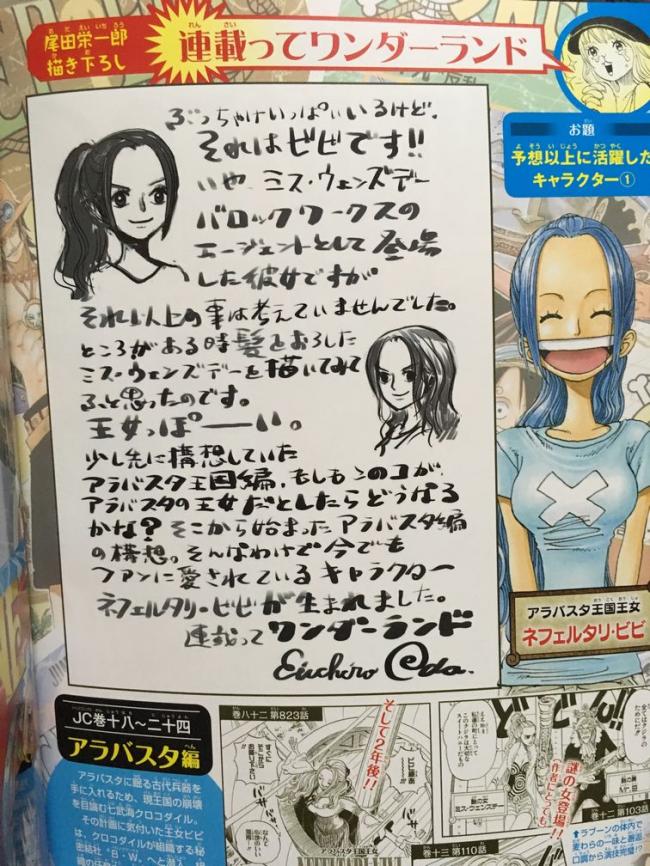 尾田栄一郎
描き下ろし
連載ってワンダーランド
お題
予想以上に活躍した
キャラクター①
ぶっちゃけいっぱいいるけど、
それはビビです!!
いや、ミス・ウェンズデー
バロックワークスの
エージェントとして登場
した彼女ですが
それ以上の事は考えていませんでした。
ところがある時髪をおろした
ミス・ウェンズデーを描いてみて
ふと思ったのです。
王女っぽーーい。
少し先に構想していた
アラバスタ王国編、もしもこのコが、
アラバスタの王女だとしたらどうなる
かな?そこから始まったアラバスタ編
の構想。そんなわけで今でも
ファンに愛されているキャラクター
ネフェルタリ・ビビが生まれました。
連載って ワンダーランド
Eiichiro Oda.
アラバスタ王国王女
ネフェルタリ・ビビ
JC巻十八〜二十四
アラバスタ編
アラバスタに眠る古代兵器を
手に入れるため、現王国の崩壊
を目論む七武海クロコダイル。
その計画に気付いた王女ビビ
は、クロコダイルが組織する秘
密結社・B・W。へと潜入
巻八十二 第823話
そして2年後!!
アラバスタ王国王女
巻十三 第110話
謎の女登場!!
作者にとっても
謎の女
ミス・ウェンズデー
巻十二 第103話
↑ラブーンの体内で
麦わらの一味と邂逅
口調から演技完璧!?